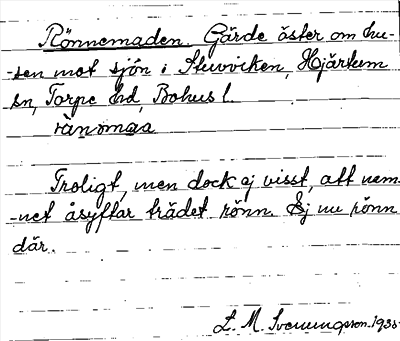 Rönnemaden. Gärde öster om hu-
-sen mot sjön i Stuvviken, Hjärtum
sn, Torpe hd, Bohus l.
rànəmaa
Troligt, men dock ej visst, att nam-
-net åsyftar trädet rönn. Ej nu rönn
där.
L. M. Svenungsson. 1935.